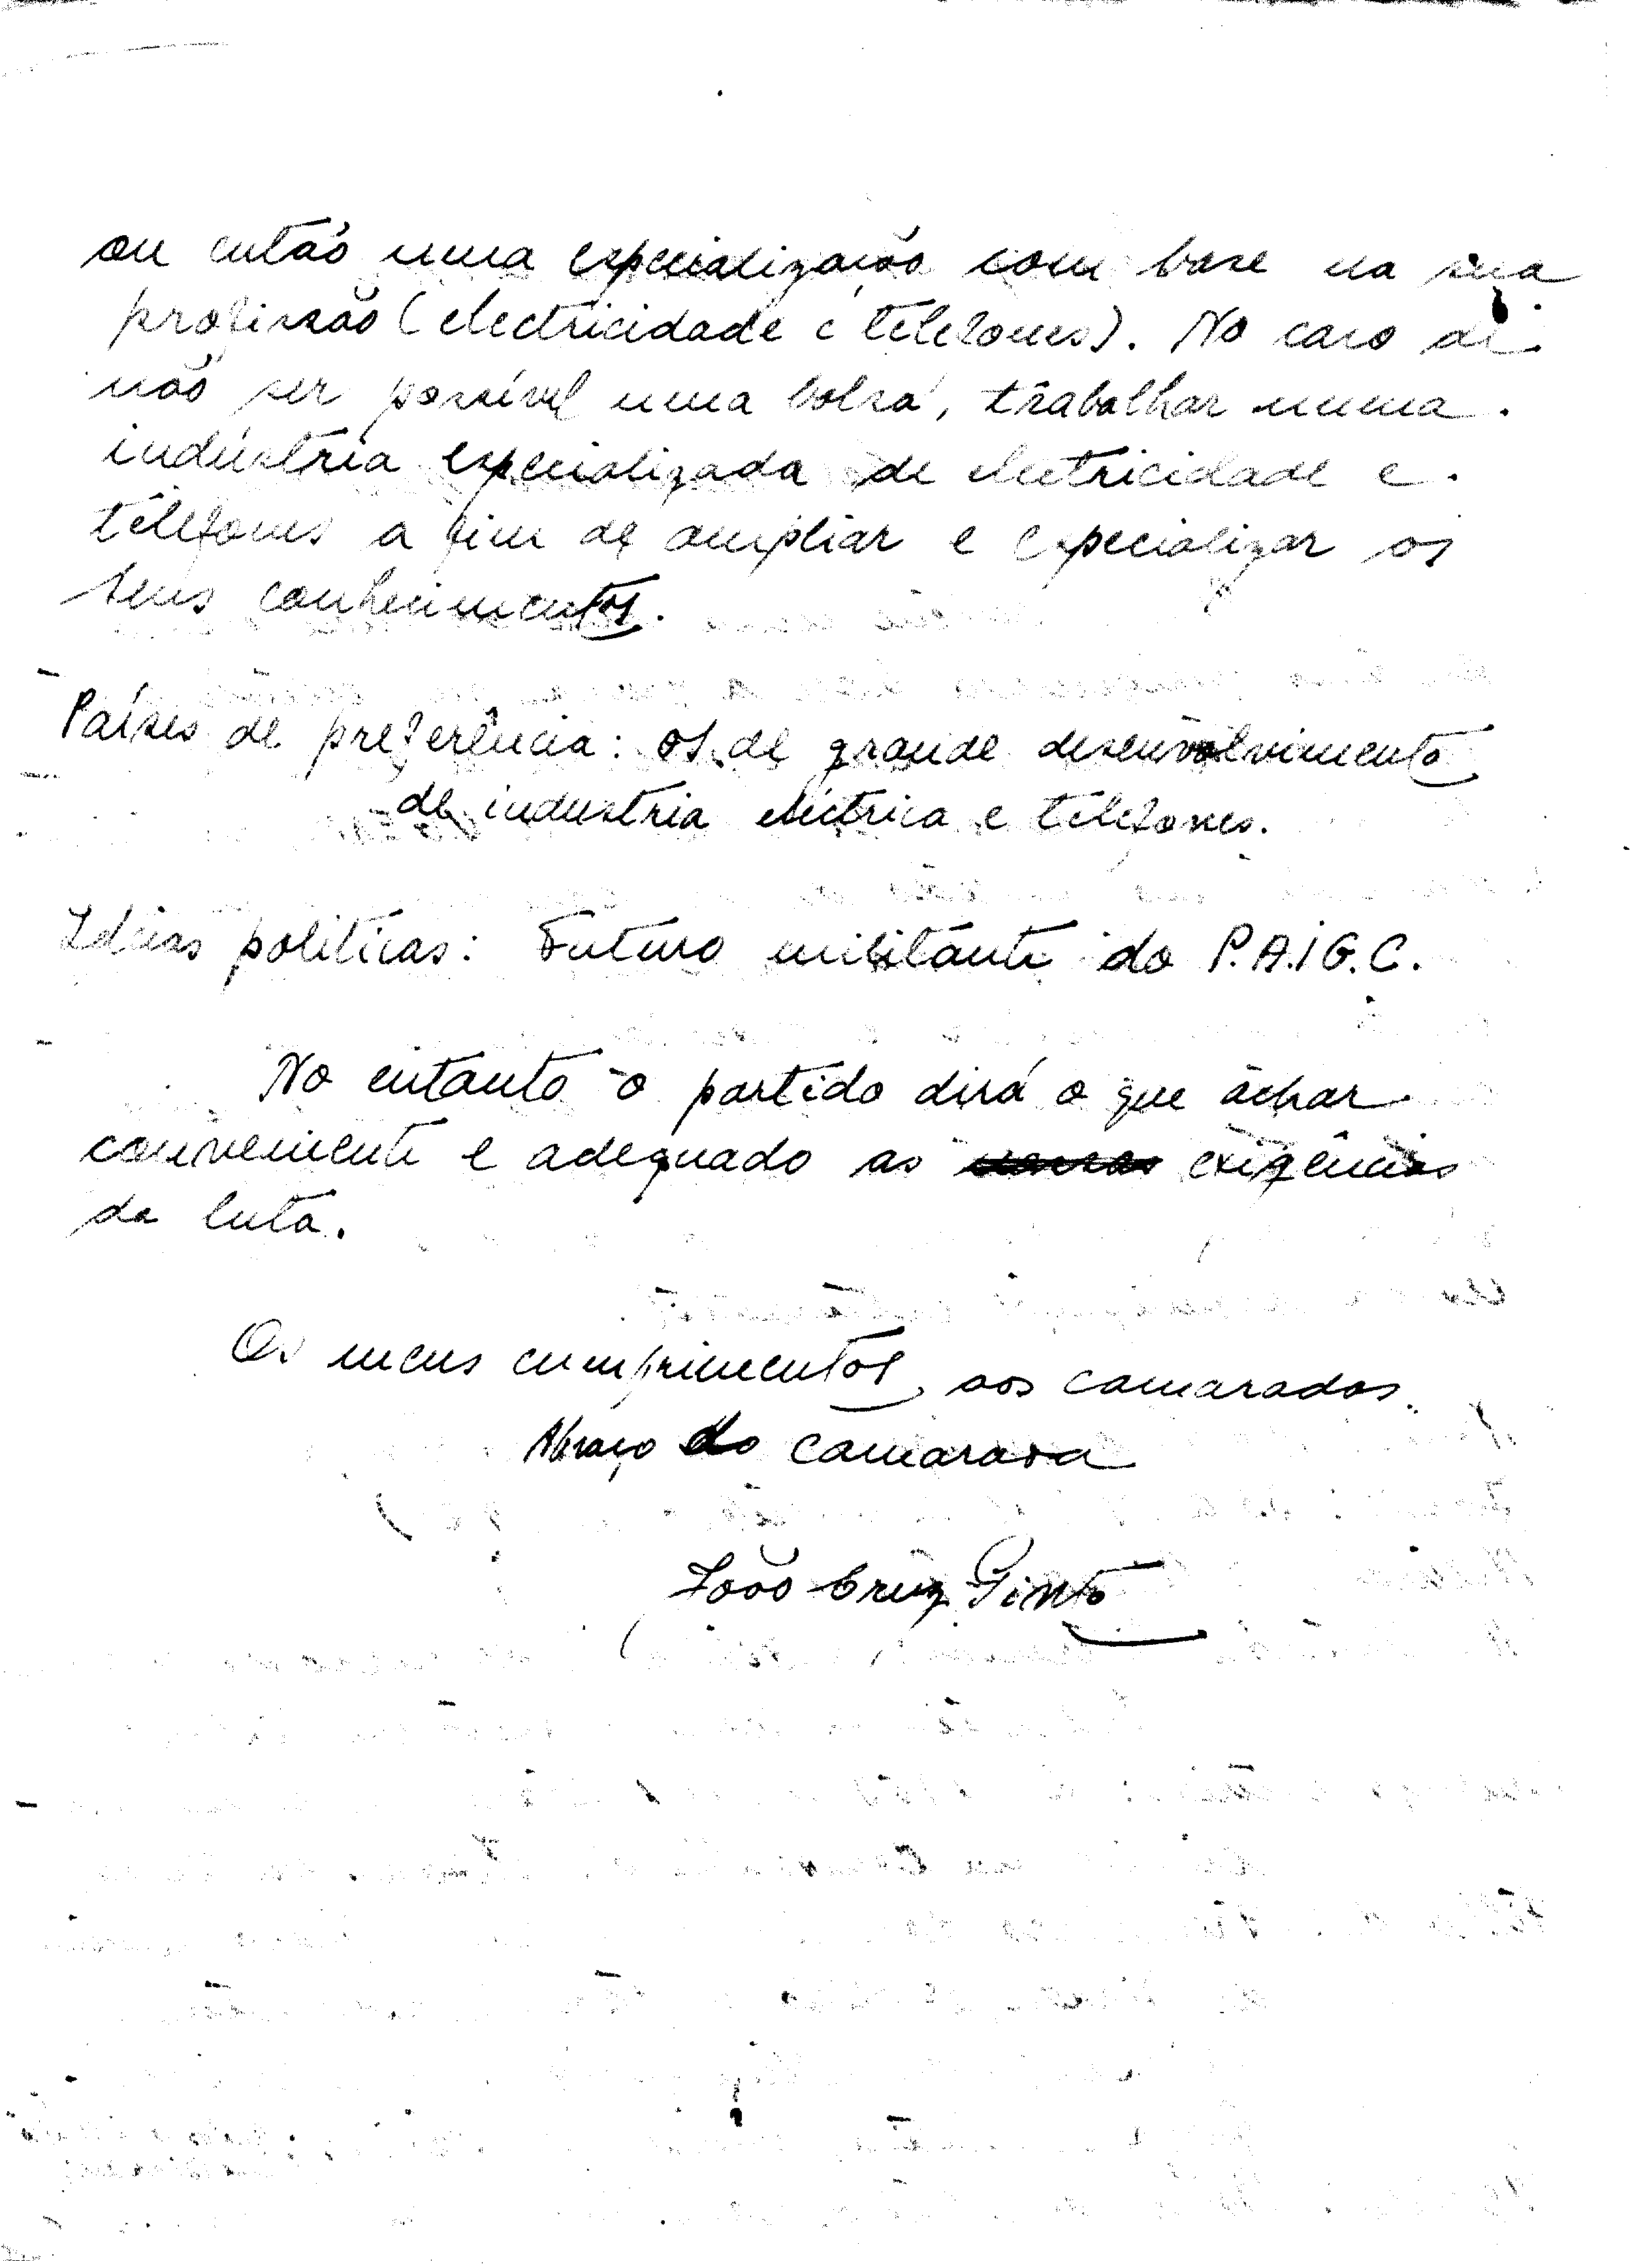 ou então uma especialização com base na sua
profissão (electricidade e telefones). No caso de
não ser possível uma bolsa, trabalhar numa
indústria especializada de electricidade e
telefones a fim de ampliar e especializar os
seus conhecimentos.
Países de preferência: os de grande desenvolvimento
de industria eléctrica e telefones.
Ideias politicas: Futuro militante do P.A.I G.C.
No entanto o partido dirá o que achar
conveniente e adequado as exigências
da luta.
Os meus cumprimentos aos camaradas.
Abraço do camarada
João Cruz Pinto